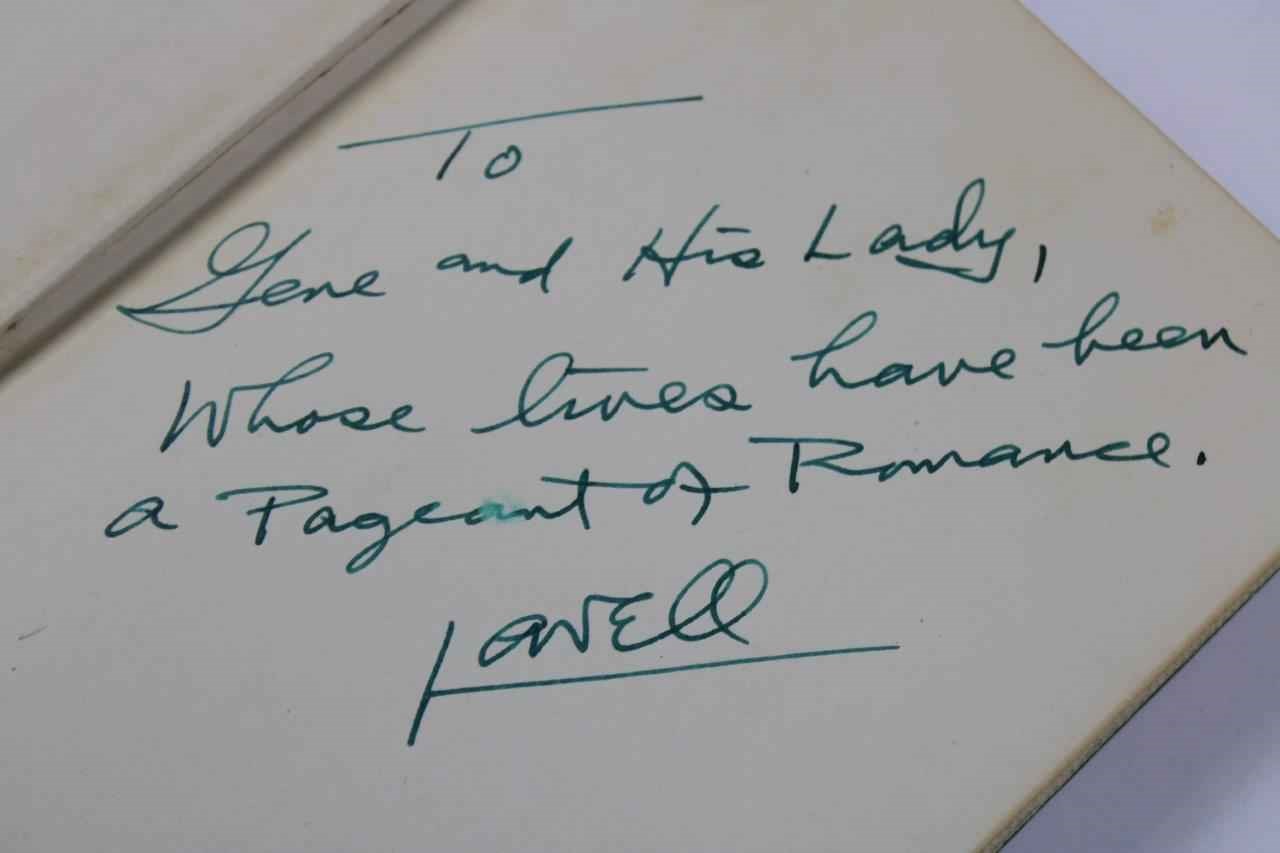 To
Gene and His Lady,
Whose lives have been
a Pageant of Romance.
Lovell